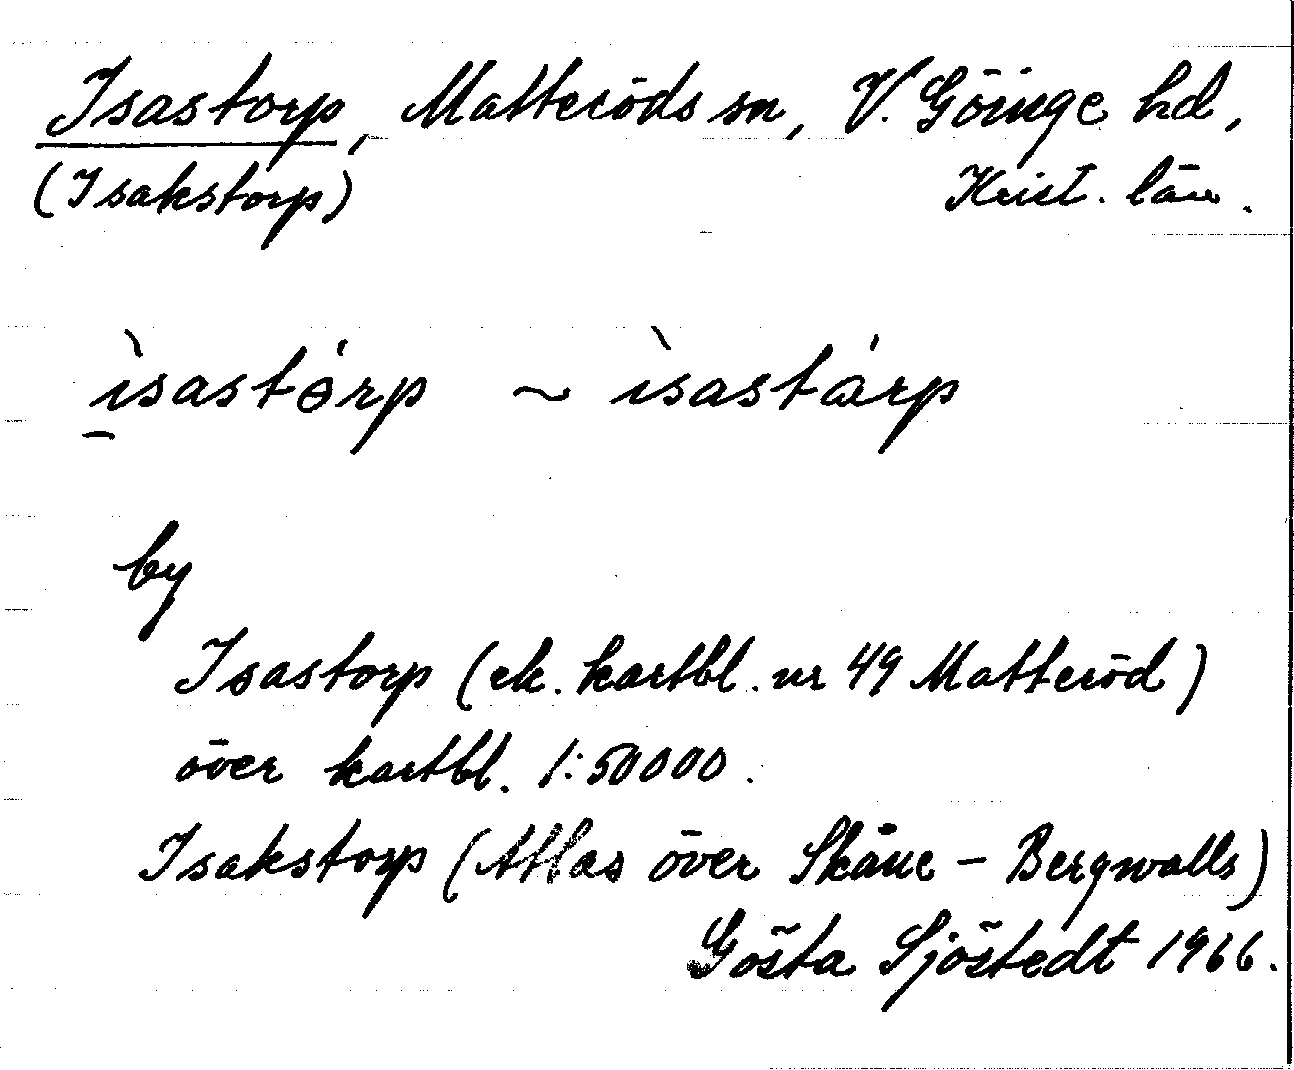 Isastorp, Matteröds sn, V. Göinge hd,
(Isakstorp) Krist. län.
ìsastɵ́rp ~ ìsastárp
by
Isastorp (ek. kartbl. nr 49 Matteröd)
över kartbl. 1:50000.
Isakstorp (Atlas över Skåne – Bergwalls)
Gösta Sjöstedt 1966.